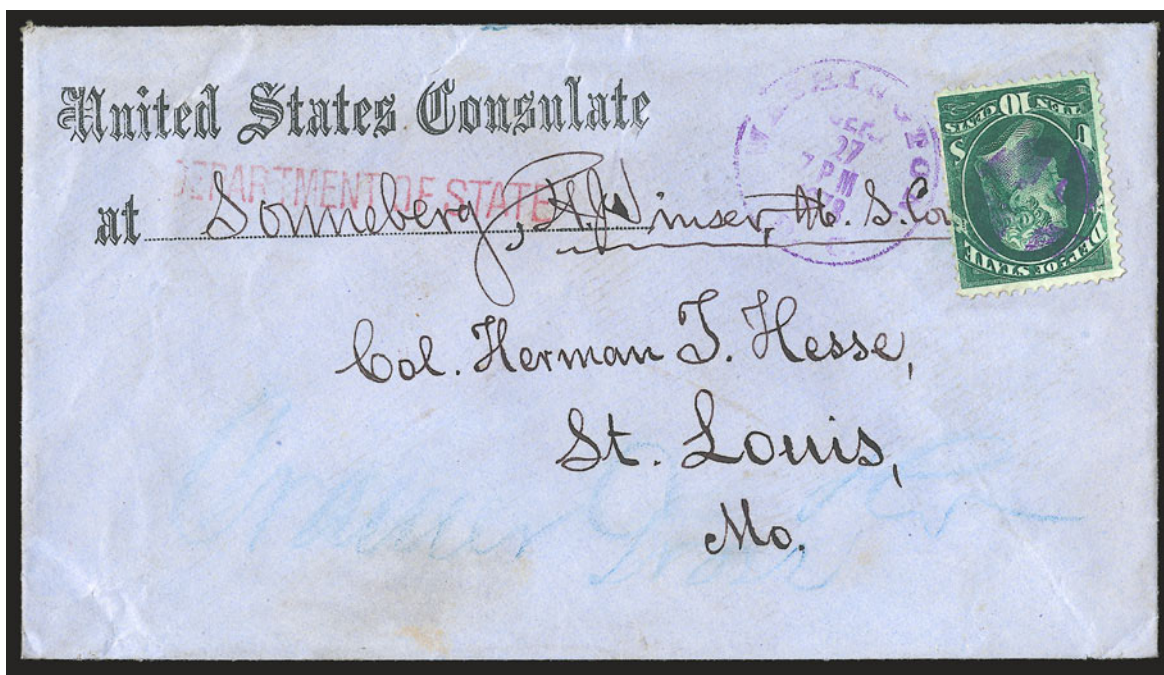 United States Consulate
DEPARTMENT OF STATE
at Sonneberg, H. J. Winser, U. S. Con
WASHINGTON
27
7 PM
D C
U S
10
TEN CENTS
DEPT. OF STATE
Col. Herman T. Hesse,
St. Louis,
Mo.